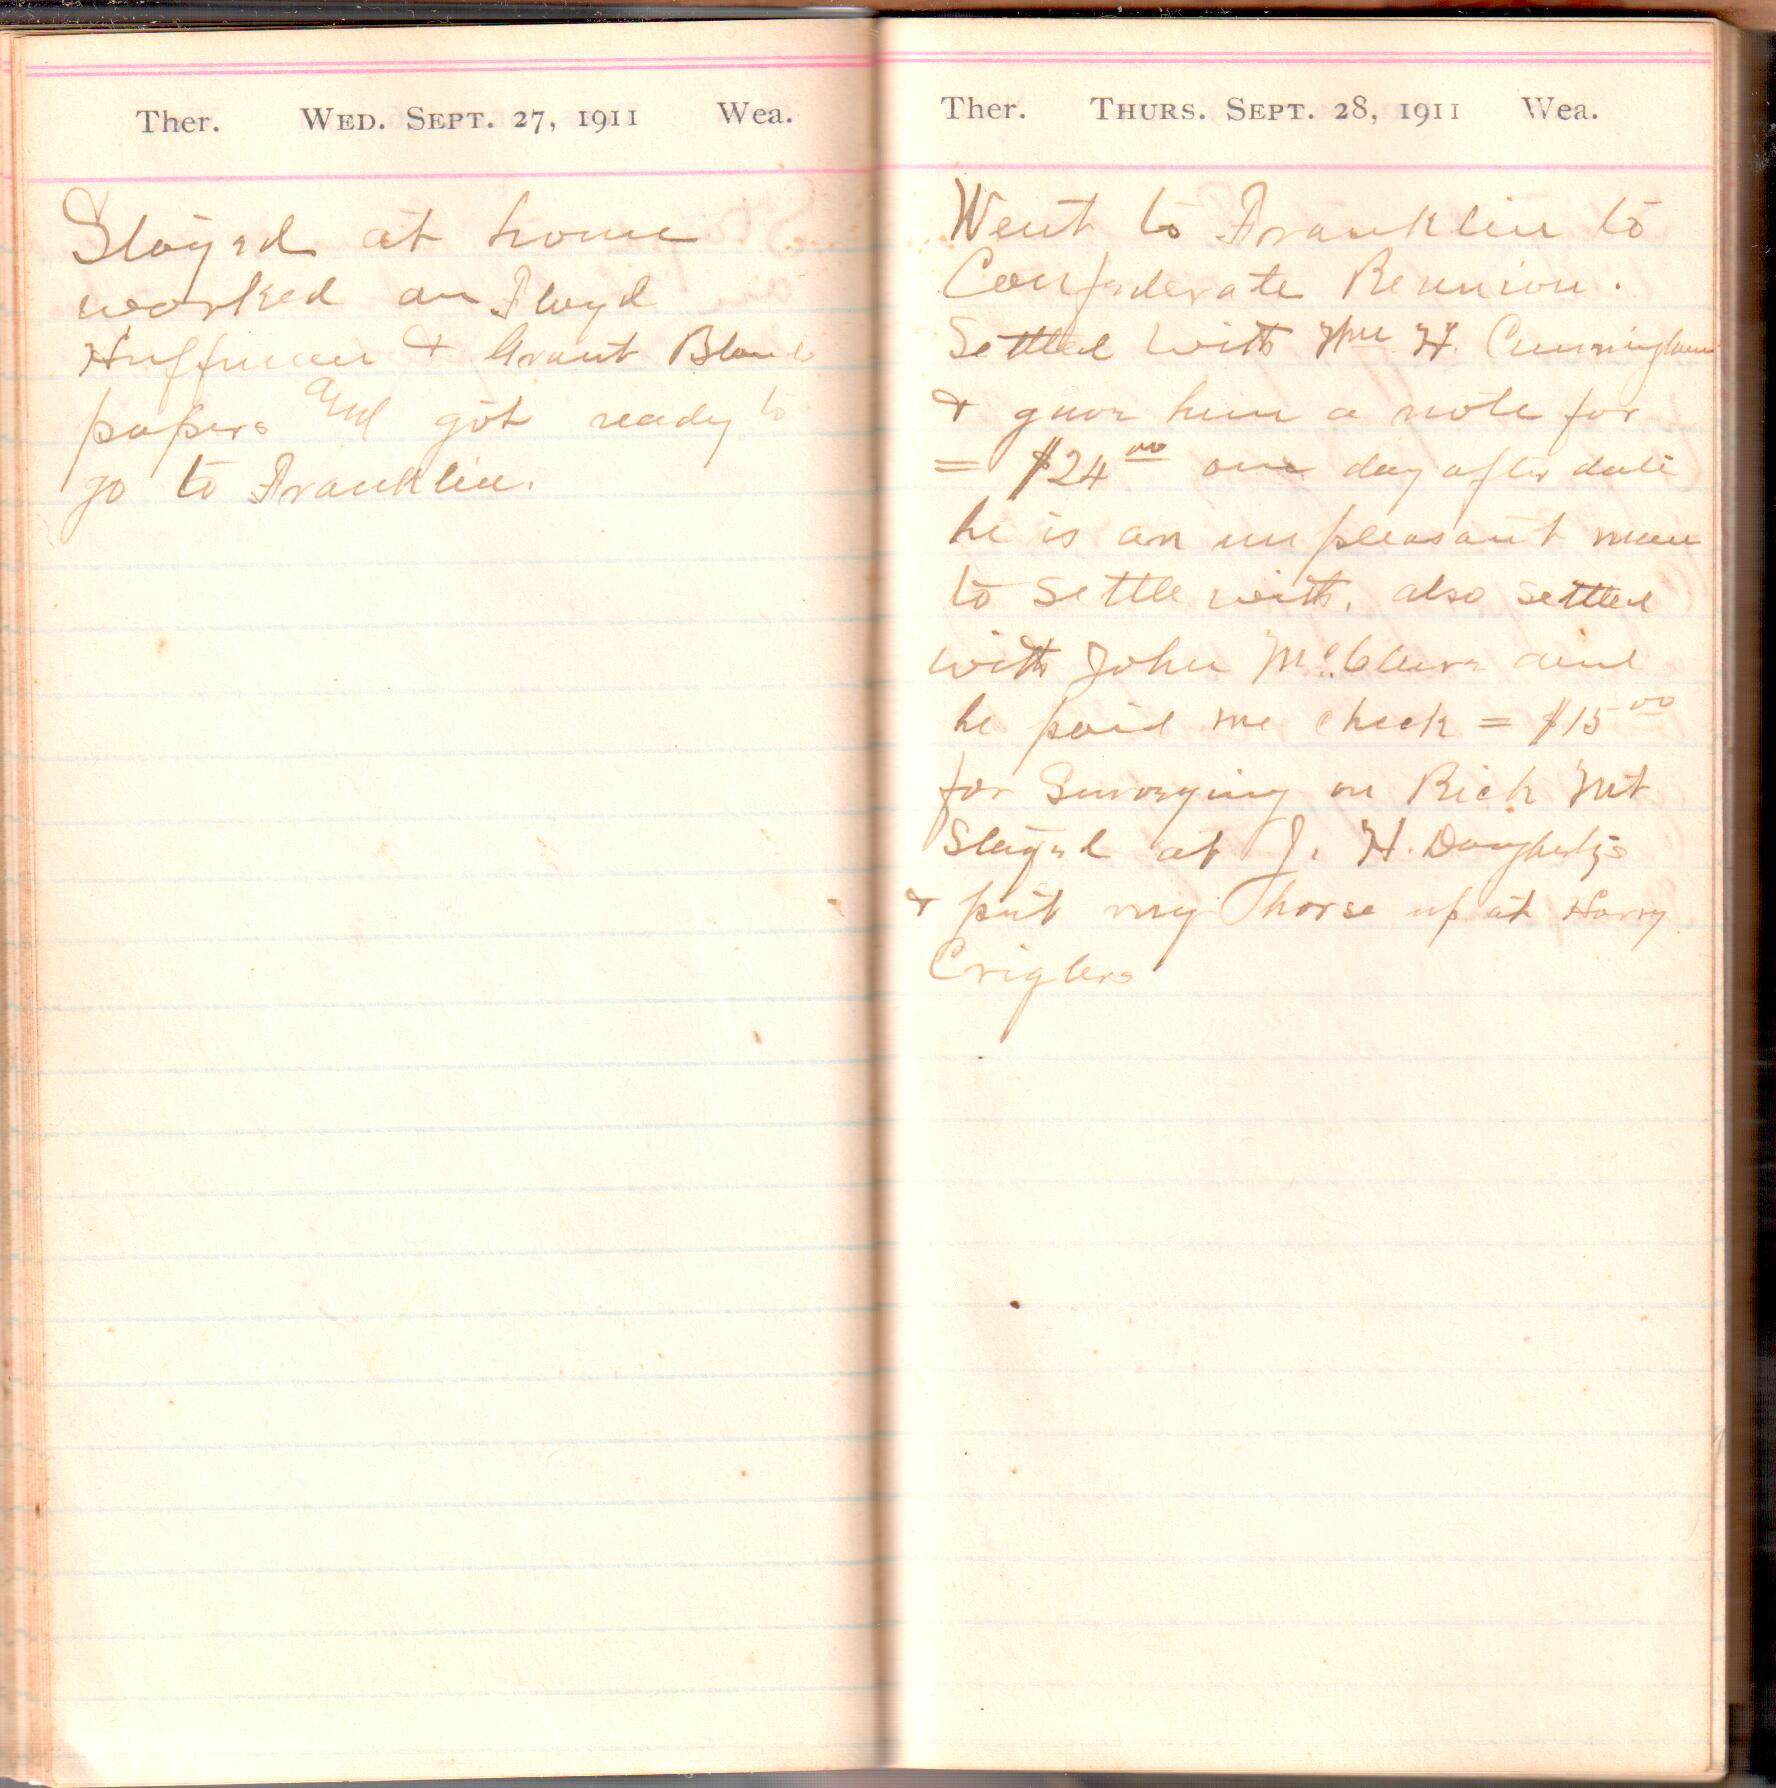 Ther. WED. SEPT. 27, 1911 Wea.
Stayed at home
worked on Floyd
Huffman & Grant Bland
papers and got ready to
go to Franklin.
Ther. THURS. SEPT. 28, 1911 Wea.
Went to Franklin to
Confederate Reunion.
Settled with Wm H. Cunningham
& gave him a note for
= $24 00 one day after date
he is an unpleasant man
to settle with, also settled
with John McClure and
he paid me check = $15 00
for Surveying on Rich Mt
Stayed at J. H. Daughertys
& put my horse up at Harry
Criglers